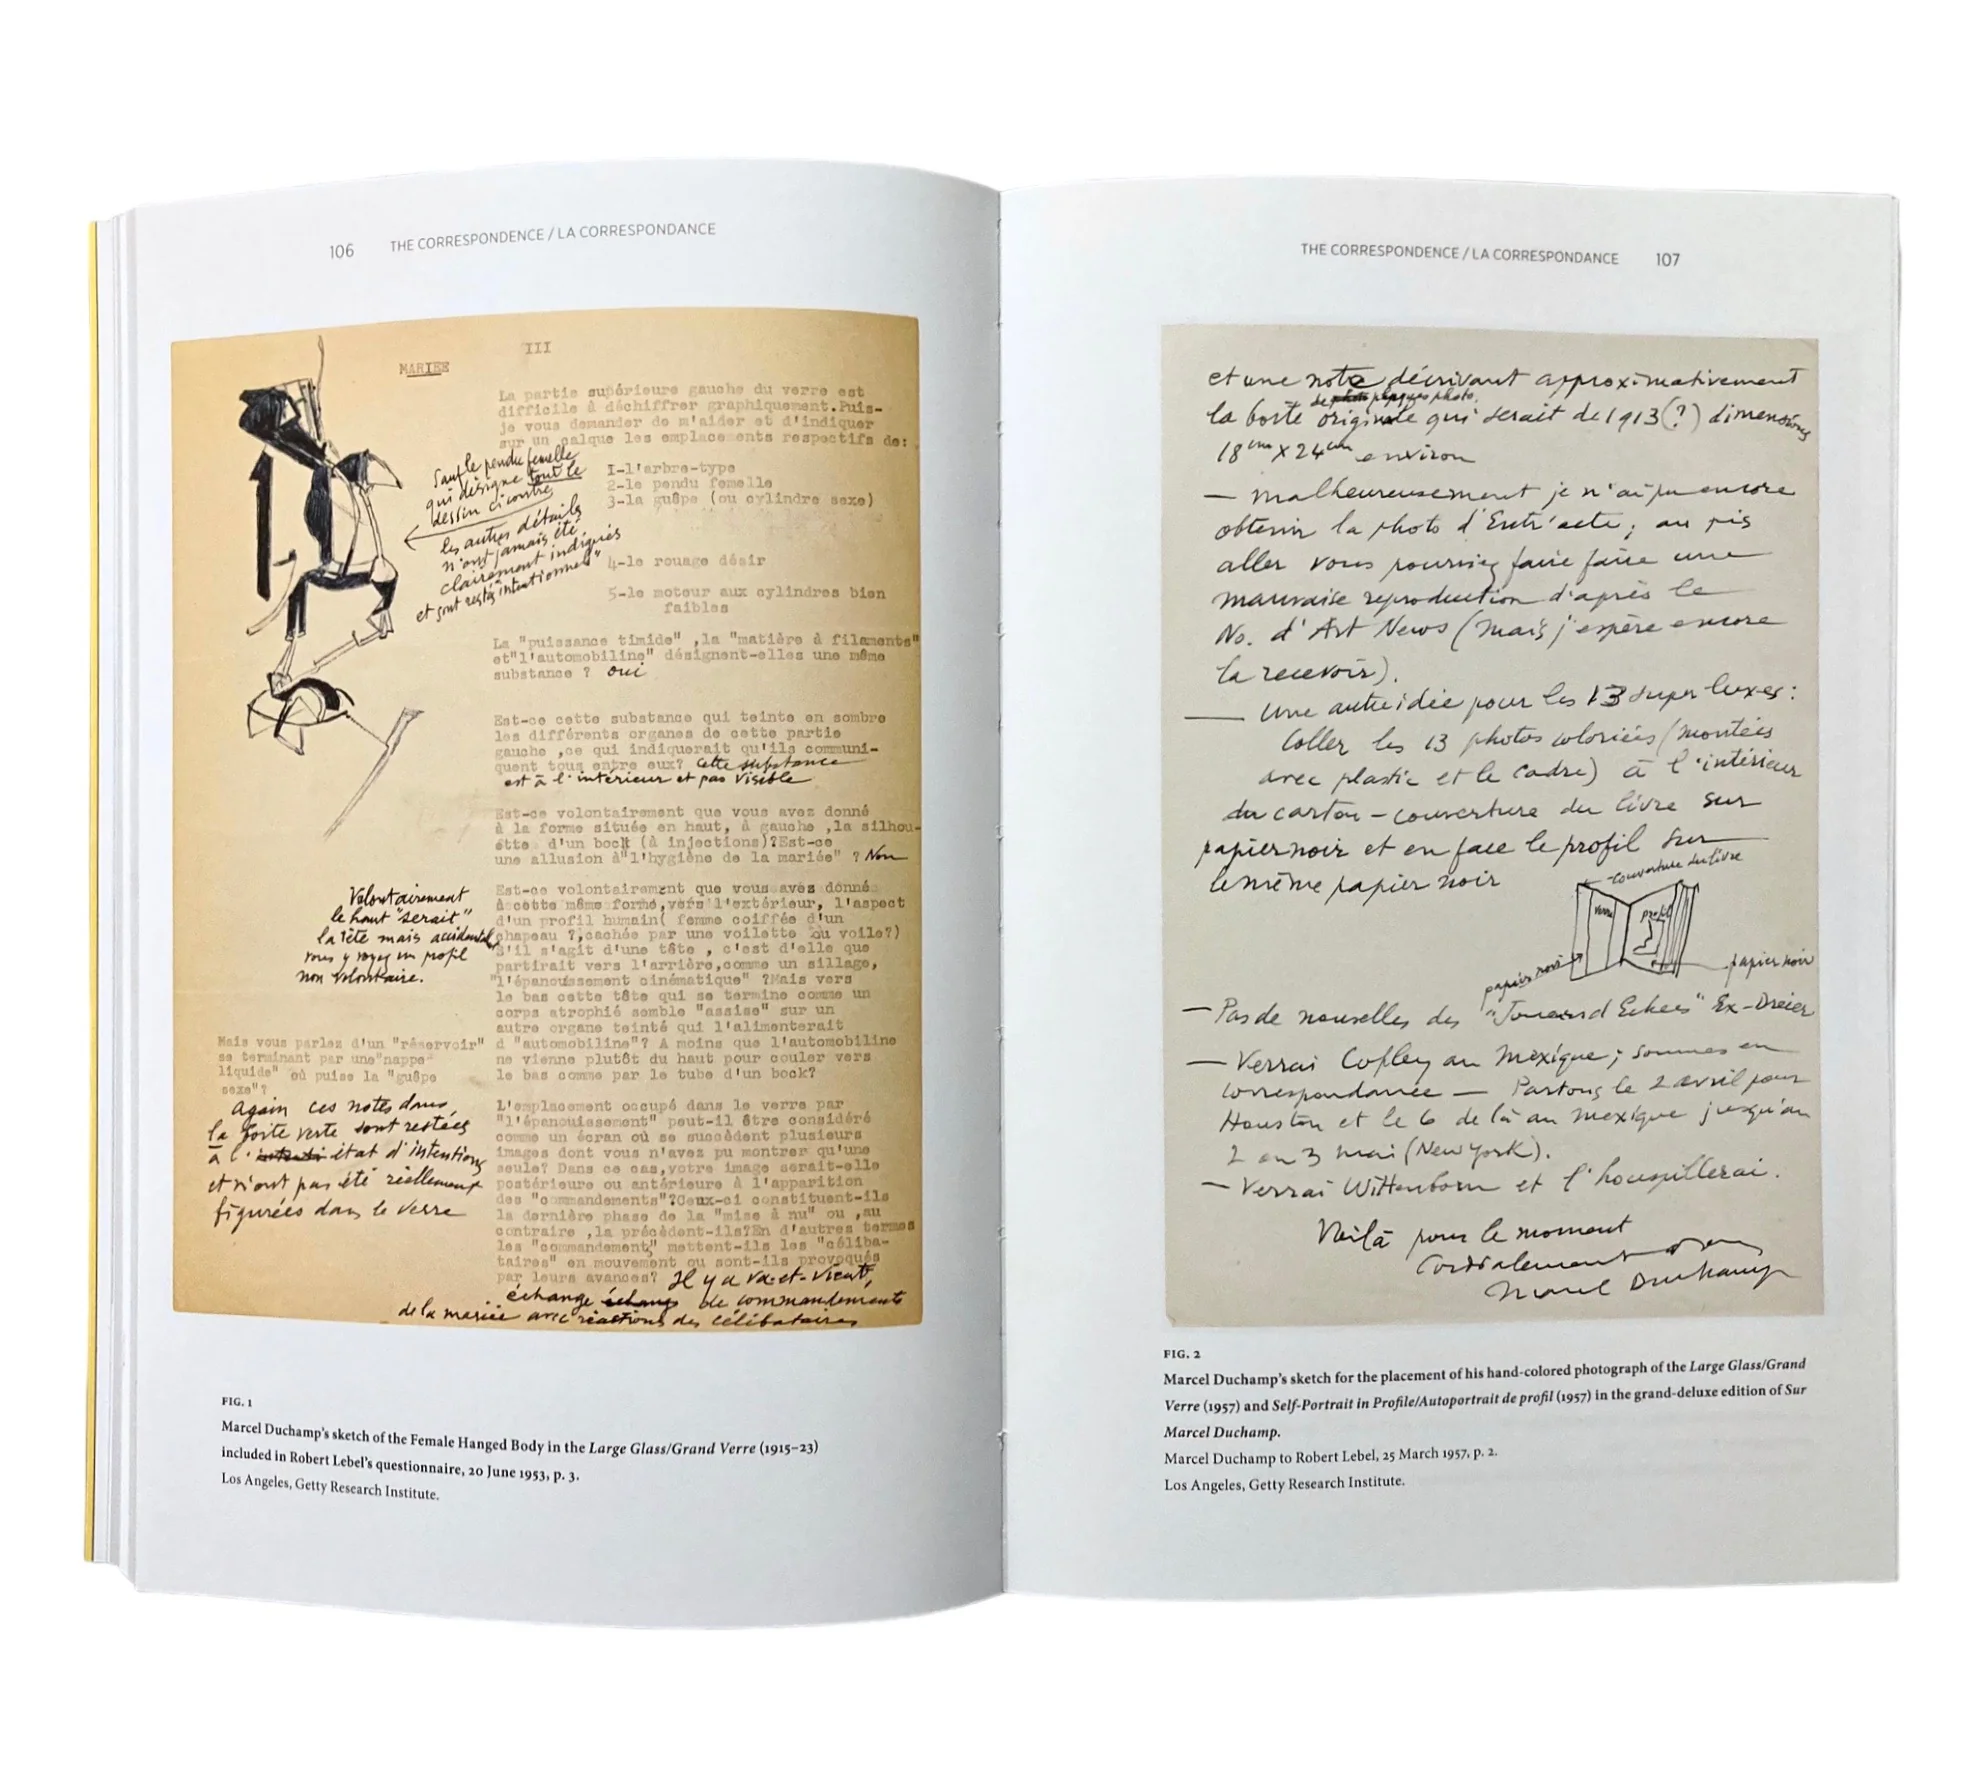 106 THE CORRESPONDENCE / LA CORRESPONDANCE
III
MARIEE
La partie supérieure gauche du verre est
difficile à déchiffrer graphiquement.Puis-
je vous demander de m'aider et d'indiquer
sur un calque les emplacements respectifs de:
I-l'arbre-type
2-le pendu femelle
3-la guêpe (ou cylindre sexe)
4-le rouage désir
5-le moteur aux cylindres bien
faibles
Sauf le pendu femelle
qui désigne tout le
dessin ci contre,
les autres détails
n'ont jamais été
clairement indiqués
et sont restés intentionnels"
La "puissance timide" ,la "matière à filaments"
et"l'automobiline" désignent-elles une même
substance ? oui
Est-ce cette substance qui teinte en sombre
les différents organes de cette partie
gauche ,ce qui indiquerait qu'ils communi-
quent tous entre eux? Cette substance
est à l'intérieur et pas visible
Est-ce volontairement que vous avez donné
à la forme située en haut, à gauche ,la silhou-
ette d'un bock (à injections)?Est-ce
une allusion à"l'hygiène de la mariée" ? Non
Est-ce volontairement que vous avez donné
à cette même forme,vers l'extérieur, l'aspect
d'un profil humain( femme coiffée d'un
chapeau ?,cachée par une voilette ou voile?)
S'il s'agit d'une tête , c'est d'elle que
partirait vers l'arrière,comme un sillage,
"l'épanouissement cinématique" ?Mais vers
le bas cette tête qui se termine comme un
corps atrophié semble "assise" sur un
autre organe teinté qui l'alimenterait
d "automobiline"? A moins que l'automobiline
ne vienne plutôt du haut pour couler vers
le bas comme par le tube d'un bock?
Volontairement
le haut "serait"
la tête mais accidentel,
vous y voyez un profil
non volontaire.
Mais vous parlez d'un "réservoir"
se terminant par une"nappe
liquide" où puise la "guêpe
sexe"?
Again ces notes dans
la boite verte sont restées
à l' état d'intentions
et n'ont pas été réellement
figurées dans le verre
L'emplacement occupé dans le verre par
"l'épanouissement" peut-il être considéré
comme un écran où se succèdent plusieurs
images dont vous n'avez pu montrer qu'une
seule? Dans ce cas,votre image serait-elle
postérieure ou antérieure à l'apparition
des "commandements"?Ceux-ci constituent-ils
la dernière phase de la "mise à nu" ou ,au
contraire ,la précèdent-ils?En d'autres termes
les "commandement" mettent-ils les "céliba-
taires" en mouvement ou sont-ils provoqués
par leurs avances? Il y a va-et-vient,
échange échange de commandements
de la mariée avec réactions des célibataires
FIG. 1
Marcel Duchamp's sketch of the Female Hanged Body in the Large Glass/Grand Verre (1915–23)
included in Robert Lebel's questionnaire, 20 June 1953, p. 3.
Los Angeles, Getty Research Institute.
THE CORRESPONDENCE / LA CORRESPONDANCE 107
et une note décrivant approximativement
de plaques photo.
la boite originale qui serait de 1913(?) dimensions
18cm x 24cm environ
— malheureusement je n'ai pu encore
obtenir la photo d'Entr'acte; au pis
aller vous pourriez faire faire une
mauvaise reproduction d'après le
No. d'Art News (mais j'espère encore
la recevoir).
— Une autre idée pour les 13 super luxes:
Coller les 13 photos coloriées (montées
avec plastic et le cadre) à l'intérieur
du carton-couverture du livre sur
papier noir et en face le profil sur
le même papier noir
couverture du livre
verre
profil
papier noir
papier noir
— Pas de nouvelles des "Joueurs d'Echecs" Ex-Dreier
— Verrai Copley au Mexique; sommes en
correspondance — Partons le 2 avril pour
Houston et le 6 de là au Mexique jusqu'au
2 ou 3 mai (New York).
— Verrai Wittenborn et l'houspillerai.
Voilà pour le moment
Cordialement
Marcel Duchamp
FIG. 2
Marcel Duchamp's sketch for the placement of his hand-colored photograph of the Large Glass/Grand
Verre (1957) and Self-Portrait in Profile/Autoportrait de profil (1957) in the grand-deluxe edition of Sur
Marcel Duchamp.
Marcel Duchamp to Robert Lebel, 25 March 1957, p. 2.
Los Angeles, Getty Research Institute.